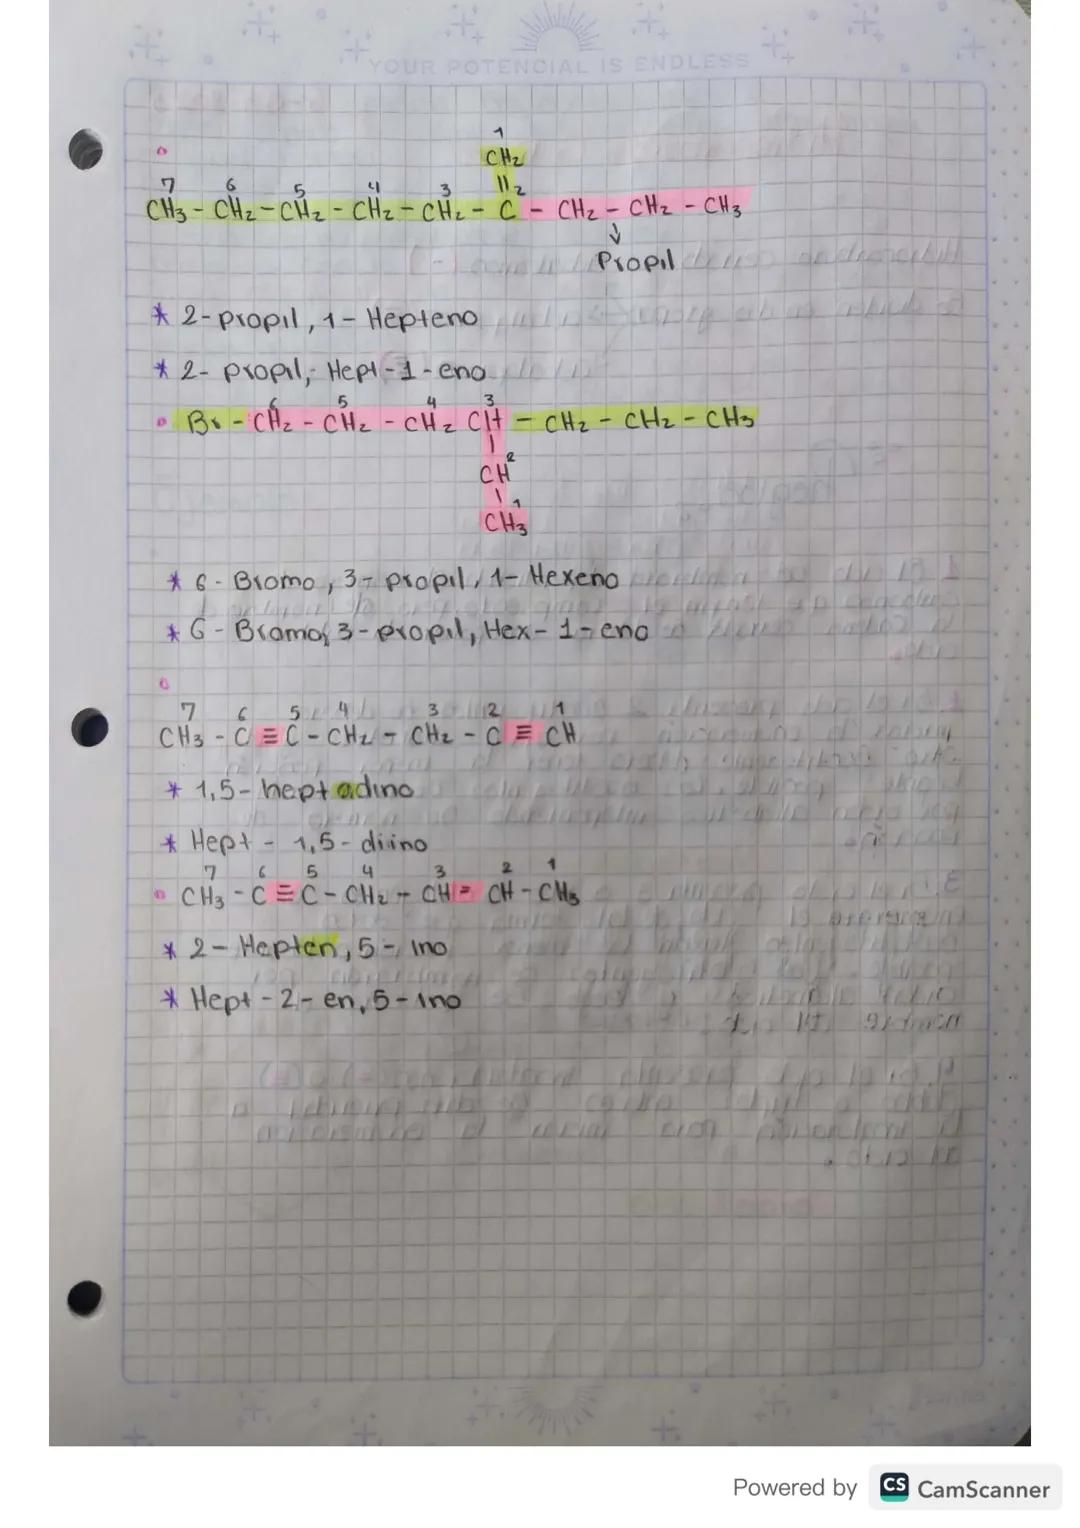 YOUR POTENCIAL IS ENDLESS
1
CH2
7 6 5 4 3 || 2
CH3 - CH2 - CH2 - CH2 - CH2 - C - CH2 - CH2 - CH3
↓
Propil
* 2-propil, 1- Hepteno
* 2- propil,- Hept-1-eno
6 5 4 3
Br - CH2 - CH2 - CH2 CH - CH2 - CH2 - CH3
|
CH 2
| 1
CH3
* 6- Bromo, 3- propil, 1- Hexeno
* 6- Bromo, 3-propil, Hex- 1-eno
7 6 5 4 3 2 1
CH3 - C ≡ C - CH2 - CH2 - C ≡ CH
* 1,5- heptadino
* Hept - 1,5- diino
7 6 5 4 3 2 1
CH3 - C ≡ C - CH2 - CH = CH - CH3
* 2- Hepten, 5- ino
* Hept -2- en, 5-ino
Powered by CS CamScanner